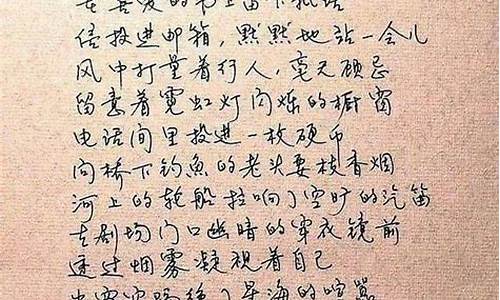 在喜爱的书上留下批语
信投进邮箱，默默地站一会儿
风中打量着行人，毫无顾忌
留意着霓虹灯闪烁的橱窗
电话间里投进一枚硬币
向桥下钓鱼的老头要枝香烟
河上的轮船拉响了空旷的汽笛
在剧场门口幽暗的穿衣镜前
透过烟雾凝视着自己
了星海的喧嚣